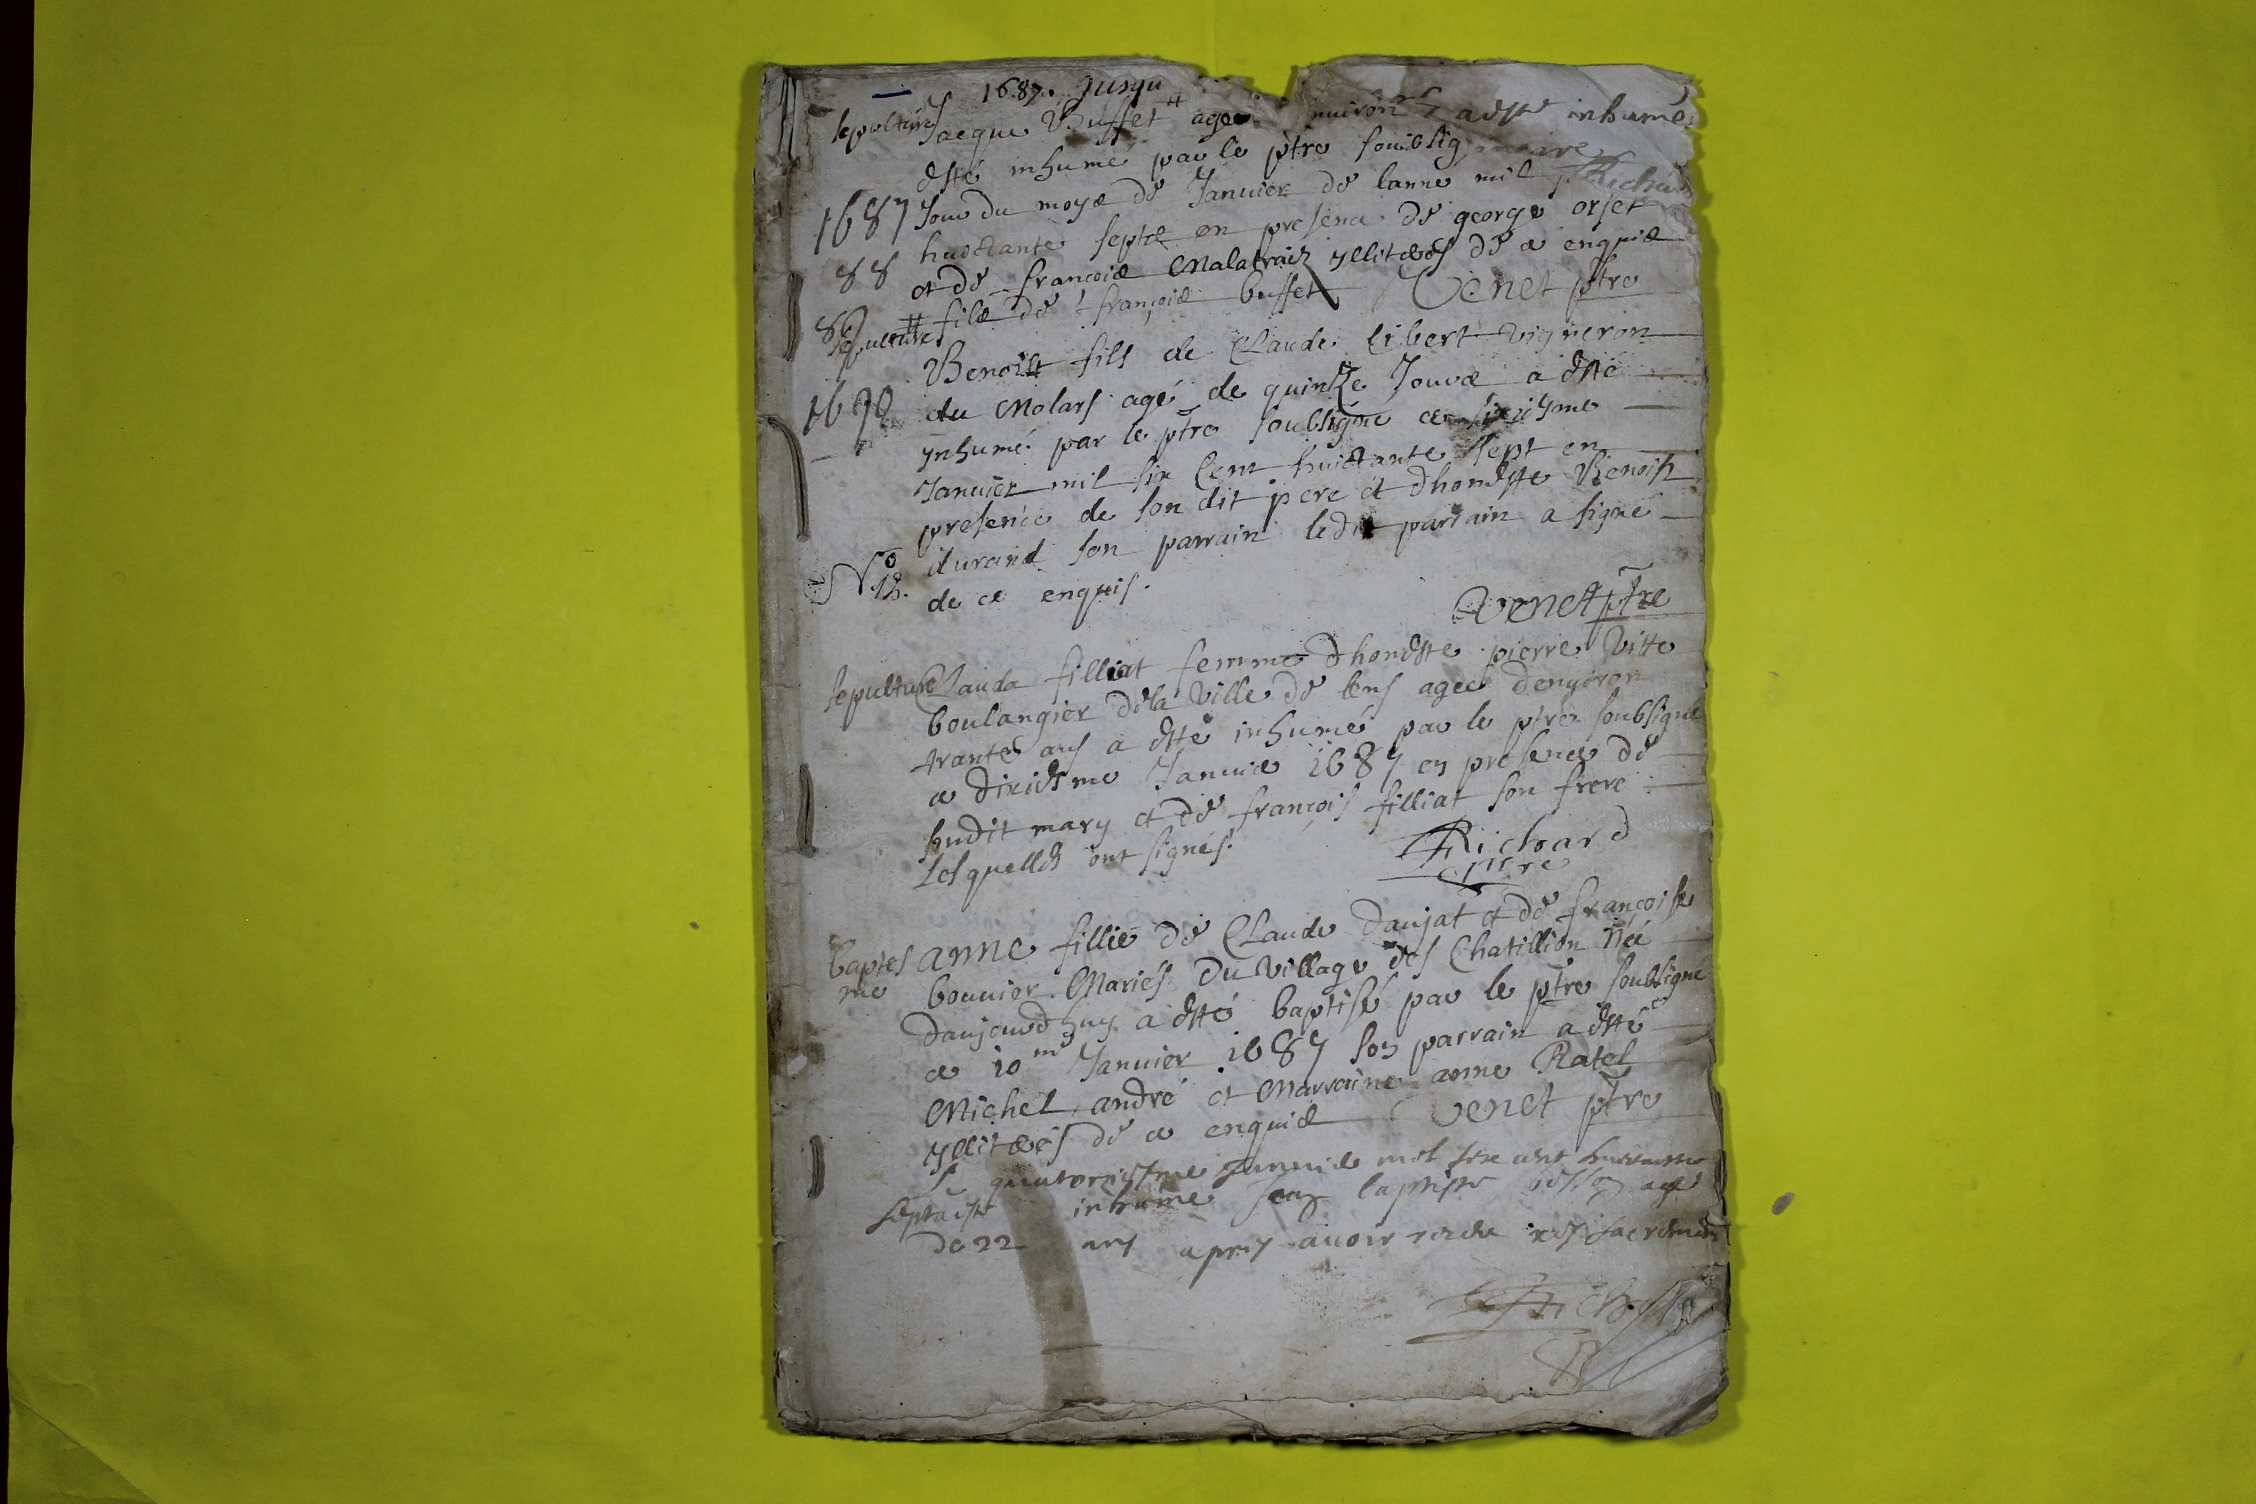 1687. Jusqu
sepultures Jacque Buffet # agee enuiron a esté inhumé
esté inhumé par le ptre soubsig
1687 Jour du moys de Januier de lanne mil Richa
88 huictante septe en presence de george orset
et de françois Malatraiz ylliteres de ce enquis
89 # fils de françois buffet Venet ptre
sepulture
Benoist fils de Claude Libert vigneron
du Molars agé de quinze Jours a esté
1690 ynhumé par le ptre soubsigné ce
Januier mil six Cent huictante sept en
presence de son dit pere et dhoneste Benoist
durand son parrain ledit parrain a signé
No 13. de ce enquis.
Venet ptre
sepulture Clauda filliat femme dhoneste pierre Vitte
boulangier dela Ville de lens agée denuiron
trante ans a esté inhumé par le ptre soubsigné
ce dixiesme Januier 1687 en presence de
sudit mary et de françois filliat son frere
Lesquelles ont signés. Richard
ptre
baptes anne fillie de Claude Daujat et de françoise
me bouuier Mariés du village des Chatillion Néé
daujourdhuy a esté baptisé par le ptre soubsigné
ce 10me Januier 1687 son parrain a esté
Michel andré et Marraine anne Ratel
yllitereés de ce enquis Venet ptre
Le quatorziesme Januier mil six cent huictante
sept a esté inhumé Jean baptiste agé
de 22 ans apres auoir receu les sacremens
Richard